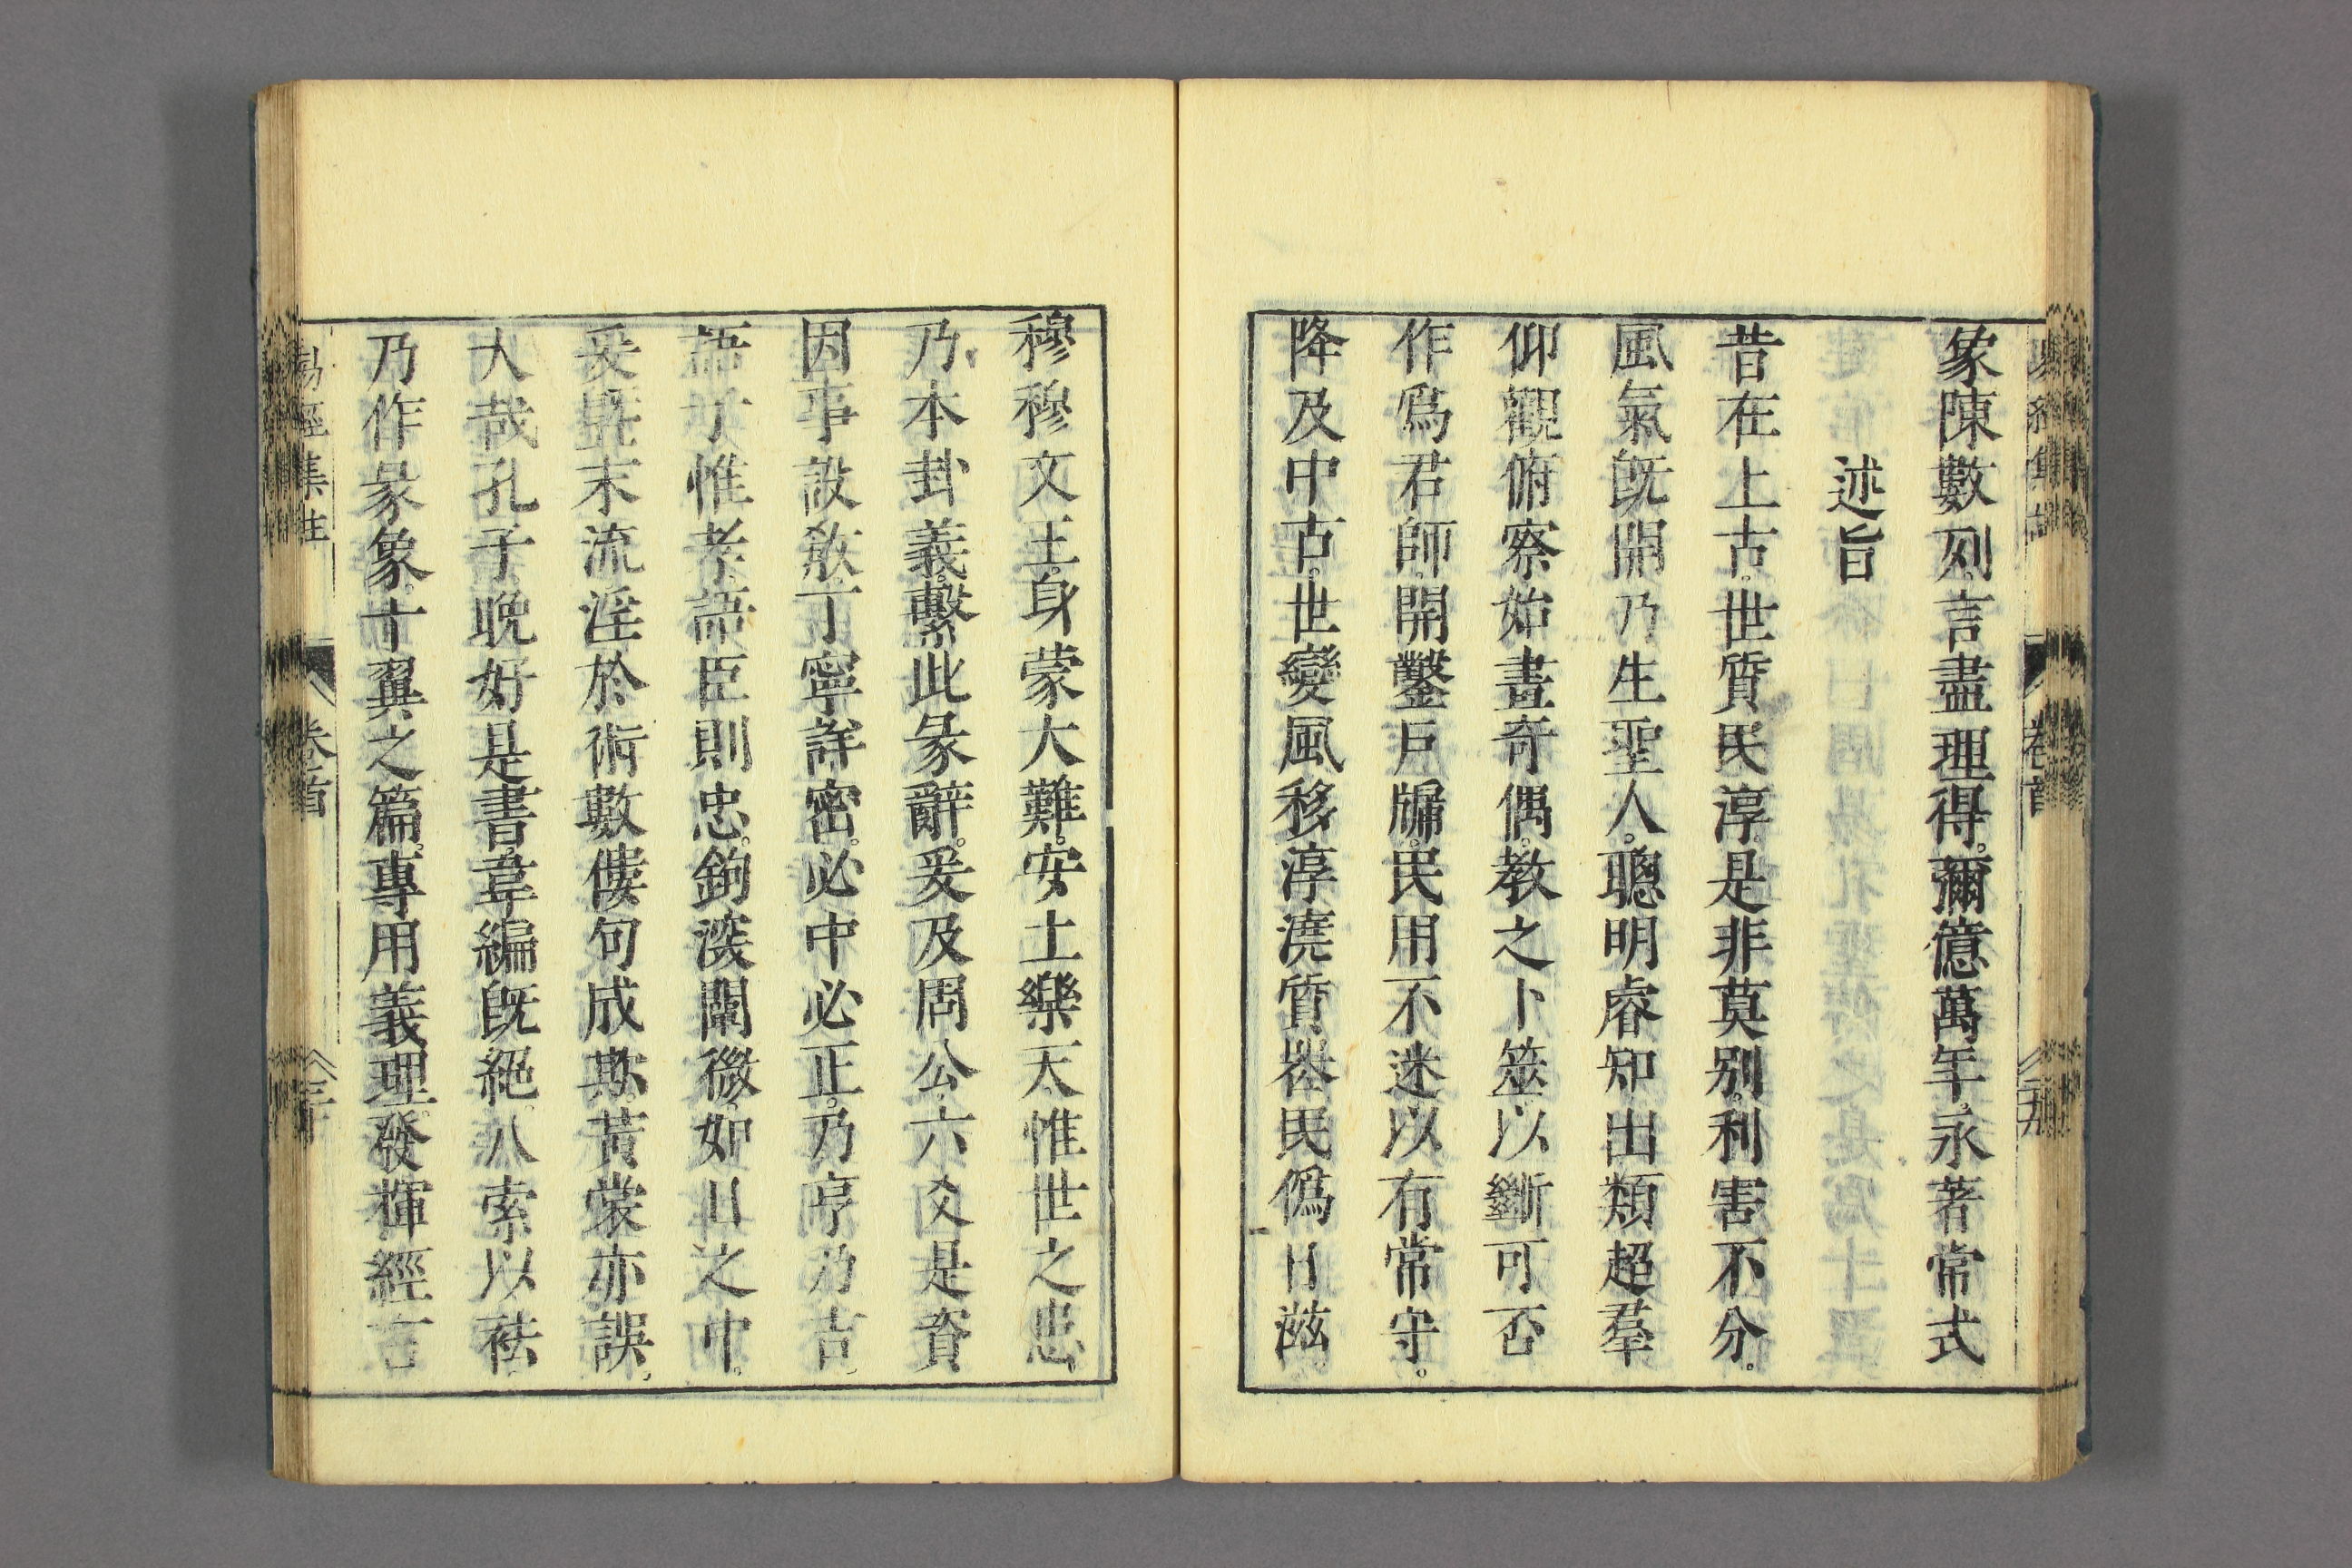 易經集註 卷首 二十九
象陳數列。言盡理得。彌億萬年。永著常式
述旨
昔在上古。世質民淳。是非莫別。利害不分。
風氣旣開。乃生聖人。聰明睿知。出類超羣
仰觀俯察。始畫奇偶。教之卜筮。以斷可否
作爲君師。開鑿戶牖。民用不迷。以有常守。
降及中古。世變風移。淳澆質喪。民僞日滋
穆穆文王。身蒙大難。安土樂天。惟世之患
乃本卦義。繫此彖辭。爰及周公。六爻是資
因事設敎。丁寧詳密。必中必正。乃亨乃吉
語子惟孝。語臣則忠。鉤深闡微。如日之中。
爰曁末流。淫於術數。僂句成欺。黃裳亦誤。
大哉孔子。晚好是書。韋編旣絕。八索以袪
乃作彖象。十翼之篇。專用義理。發揮經言
易經集註 卷首 三十